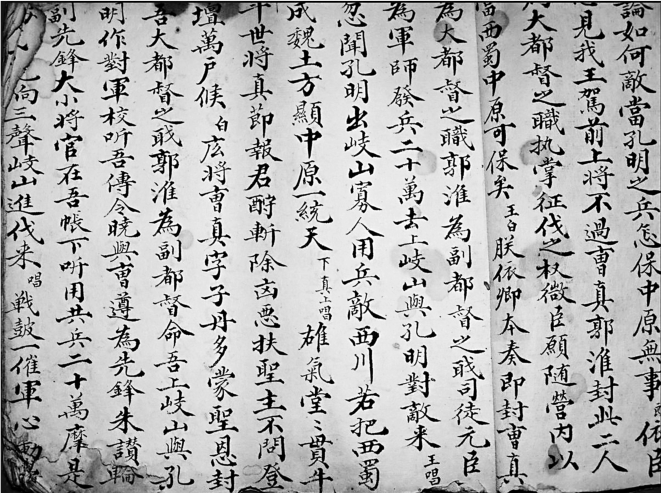 論如何敵當孔明之兵怎保中原無事 依臣
見我王駕前上將不過曹真郭淮封此二人
大都督之職执掌征伐之权微臣願随營内以
西蜀中原可保矣 王白 朕依卿本奏即封曹真
為大都督之職郭淮為副都督之戝司徒元臣
為軍師發兵二十萬去上岐山與孔明對敵来 王唱
忽聞孔明出岐山寡人用兵敵西川若把西蜀
成魏土方顯中原一統天 下真上唱 雄氣堂〻貫牛
世將真節報君酧斬除凶悪扶聖主不問登
壇萬戶候 白 広將曹真字子丹多蒙聖恩封
吾大都督之戝郭淮為副都督命吾上岐山與孔
明作對軍校听吾傳令曉與曹遵為先鋒朱讃
副先鋒大小將官在吾帳下听用共兵二十萬摩是
向三聲岐山進伐来 唱 戦皷一催軍心